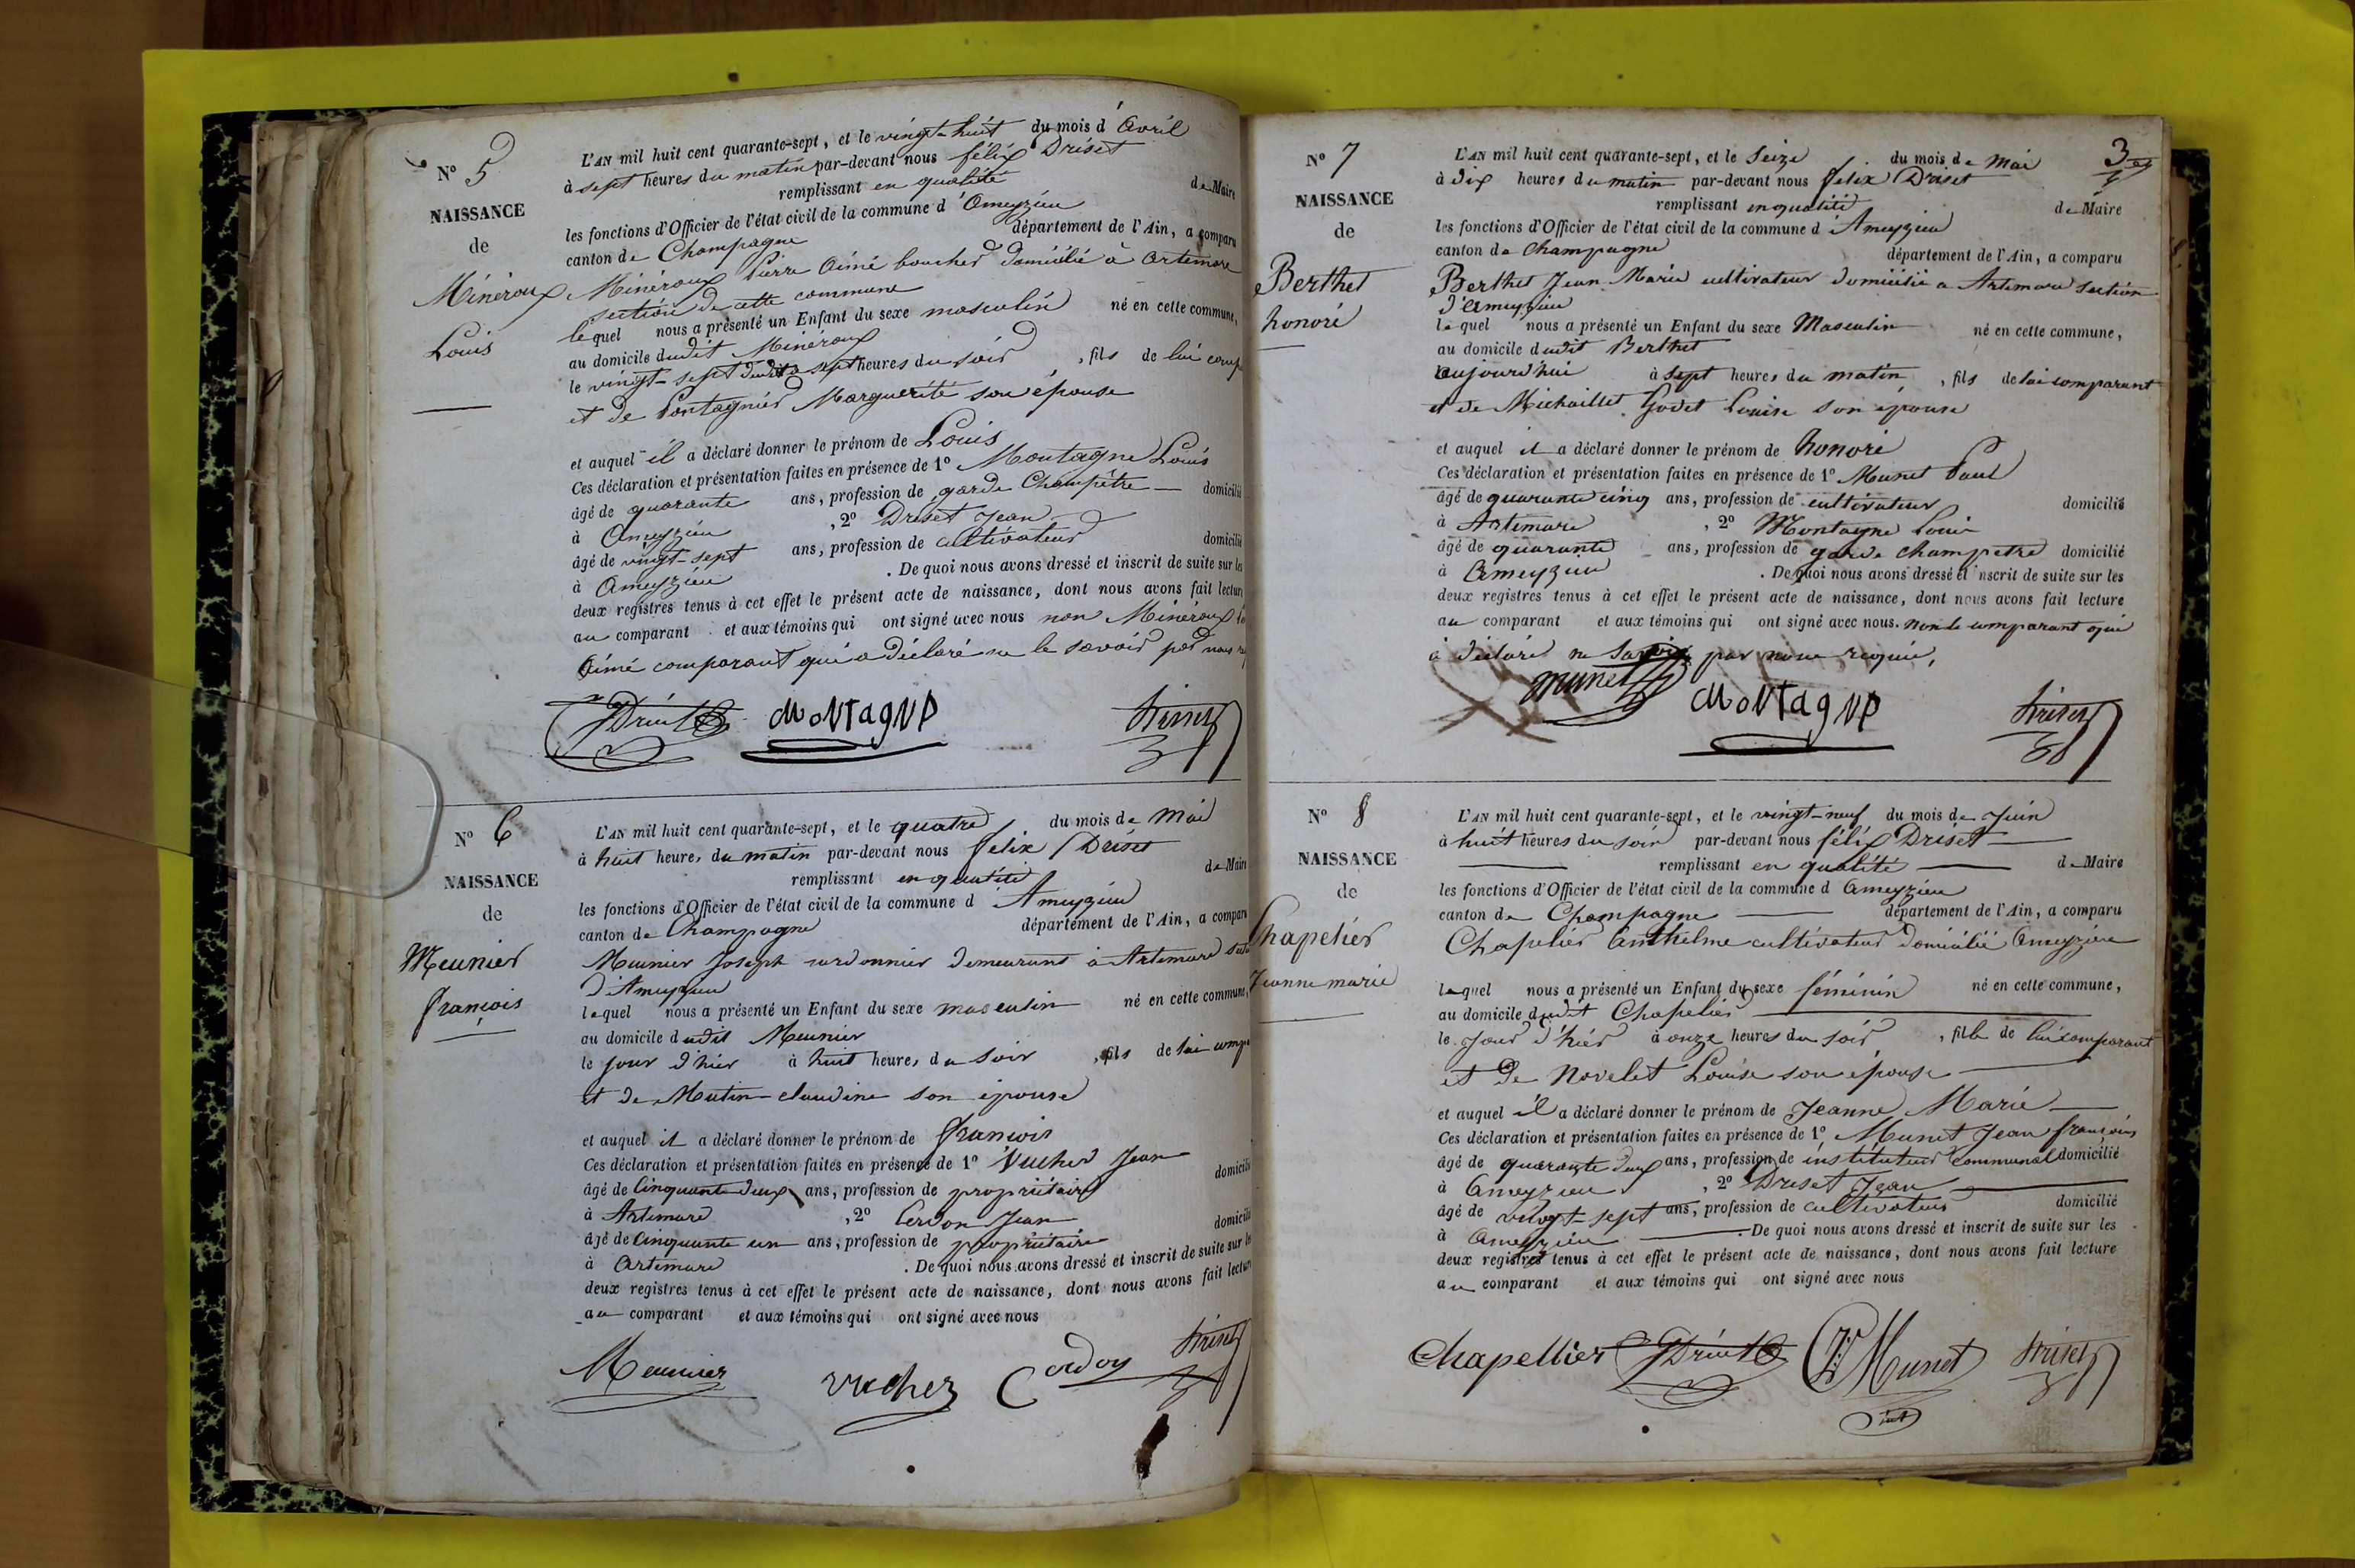 N° 5
NAISSANCE
de
Minéroux
Louis
L'AN mil huit cent quarante-sept, et le vingt-huit du mois d'Avril
à sept heures du matin par-devant nous félix Driset
remplissant en qualité de Maire
les fonctions d'Officier de l'état civil de la commune d'Ameyzieu
canton de Champagne département de l'Ain, a comparu
Minéroux Pierre Aimé boucher domicilié à Artemare
section de cette commune
lequel nous a présenté un Enfant du sexe masculin né en cette commune,
au domicile dudit Minéroux
le vingt-sept dudit à sept heures du soir, fils de lui comp
et de Pontagnier Marguerite son épouse
et auquel il a déclaré donner le prénom de Louis
Ces déclaration et présentation faites en présence de 1° Montagne Louis
âgé de quarante ans, profession de garde Champêtre domicilié
à Ameyzieu, 2° Driset Jean
âgé de vingt-sept ans, profession de cultivateur domicilié
à Ameyzieu. De quoi nous avons dressé et inscrit de suite sur les
deux registres tenus à cet effet le présent acte de naissance, dont nous avons fait lecture
au comparant et aux témoins qui ont signé avec nous non Minéroux
Aimé comparant qui a déclaré ne le savoir par nous
JDriset MoNTagNe Driset
N° 6
NAISSANCE
de
Meunier
françois
L'AN mil huit cent quarante-sept, et le quatre du mois de Mai
à huit heures du matin par-devant nous felix Driset
remplissant en qualité de Maire
les fonctions d'Officier de l'état civil de la commune d'Ameyzieu
canton de Champagne département de l'Ain, a comparu
Meunier Joseph cordonnier demeurant à Artemare
d'Ameyzieu
lequel nous a présenté un Enfant du sexe masculin né en cette commune,
au domicile dudit Meunier
le jour d'hier à huit heures du soir, fils de lui comp
et de Mutin claudine son épouse
et auquel il a déclaré donner le prénom de françois
Ces déclaration et présentation faites en présence de 1° Vucher Jean
âgé de Cinquante deux ans, profession de propriétaire domicilié
à Artemare, 2° Cerdon Jean
âgé de Cinquante un ans, profession de propriétaire domicilié
à Artemare. De quoi nous avons dressé et inscrit de suite sur les
deux registres tenus à cet effet le présent acte de naissance, dont nous avons fait lecture
au comparant et aux témoins qui ont signé avec nous
Meunier vucher Driset
3
N° 7
NAISSANCE
de
Berthet
honoré
L'AN mil huit cent quarante-sept, et le Seize du mois de Mai
à dix heures du matin par-devant nous felix Driset
remplissant en qualité de Maire
les fonctions d'Officier de l'état civil de la commune d'Ameyzieu
canton de Champagne département de l'Ain, a comparu
Berthet Jean Marie cultivateur domicilié a Artemare section
d'Ameyzieu
lequel nous a présenté un Enfant du sexe Masculin né en cette commune,
au domicile dudit Berthet
aujourd'hui à sept heures du matin, fils de lui comparant
et de Michaillet Godet Louise son épouse
et auquel il a déclaré donner le prénom de honoré
Ces déclaration et présentation faites en présence de 1° Munet Paul
âgé de quarante cinq ans, profession de cultivateur domicilié
à Artemare, 2° Montagne Louis
âgé de quarante ans, profession de garde champetre domicilié
à Ameyzieu. De quoi nous avons dressé et inscrit de suite sur les
deux registres tenus à cet effet le présent acte de naissance, dont nous avons fait lecture
au comparant et aux témoins qui ont signé avec nous. non le comparant qui
a déclaré ne savoir par nous requis,
munet MoNTagNe Driset
N° 8
NAISSANCE
de
Chapelier
Jeanne marie
L'AN mil huit cent quarante-sept, et le vingt-neuf du mois de Juin
à huit heures du soir par-devant nous félix Driset
remplissant en qualité de Maire
les fonctions d'Officier de l'état civil de la commune d Ameyzieu
canton de Champagne département de l'Ain, a comparu
Chapelier Anthelme cultivateur domicilié Ameyzieu
lequel nous a présenté un Enfant du sexe féminin né en cette commune,
au domicile dudit Chapelier
le jour d'hier à onze heures du soir, fille de lui comparant
et de Novelet Louise son épouse
et auquel il a déclaré donner le prénom de Jeanne Marie
Ces déclaration et présentation faites en présence de 1° Munet Jean françois
âgé de quarante deux ans, profession de instituteur communal domicilié
à Ameyzieu, 2° Driset Jean
âgé de vingt-sept ans, profession de cultivateur domicilié
à Ameyzieu. De quoi nous avons dressé et inscrit de suite sur les
deux registres tenus à cet effet le présent acte de naissance, dont nous avons fait lecture
au comparant et aux témoins qui ont signé avec nous
Chapellier JDriset Munet Driset